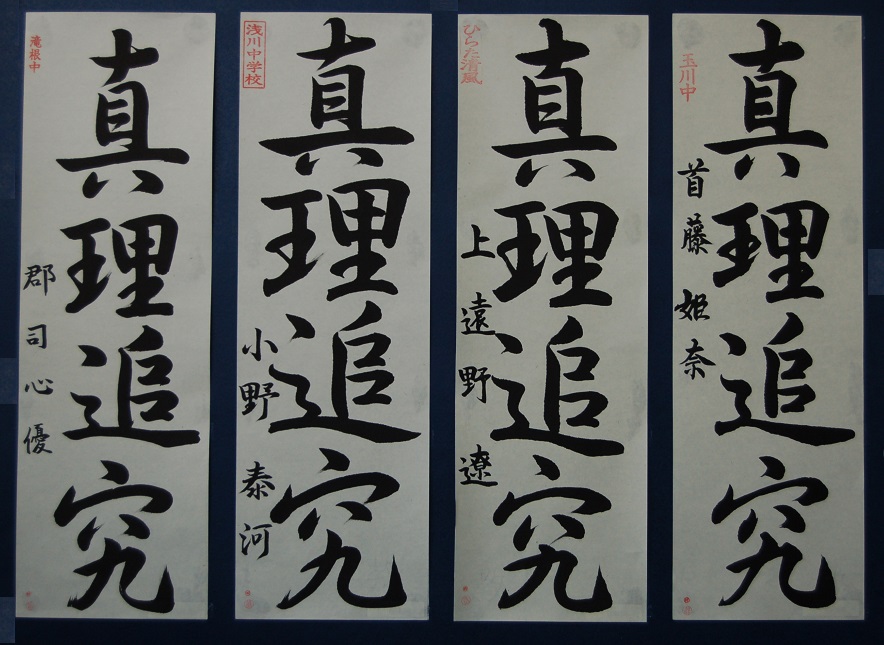 滝根中
真理追究
郡司心優
浅川中学校
真理追究
小野泰河
ひらた清風
真理追究
上遠野遼
玉川中
真理追究
首藤姫奈